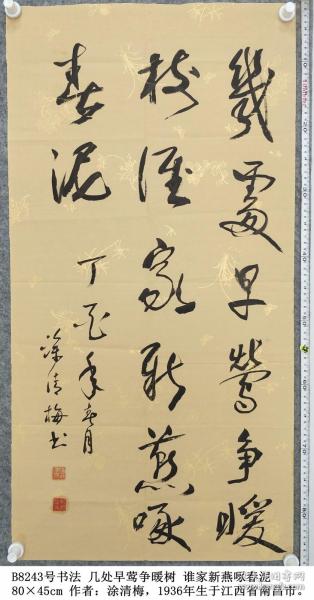 幾處早鶯争暖
樹誰家新燕啄
春泥
丁酉年春月
涂清梅书
B8243号书法 几处早莺争暖树 谁家新燕啄春泥
80×45cm 作者：涂清梅，1936年生于江西省南昌市。